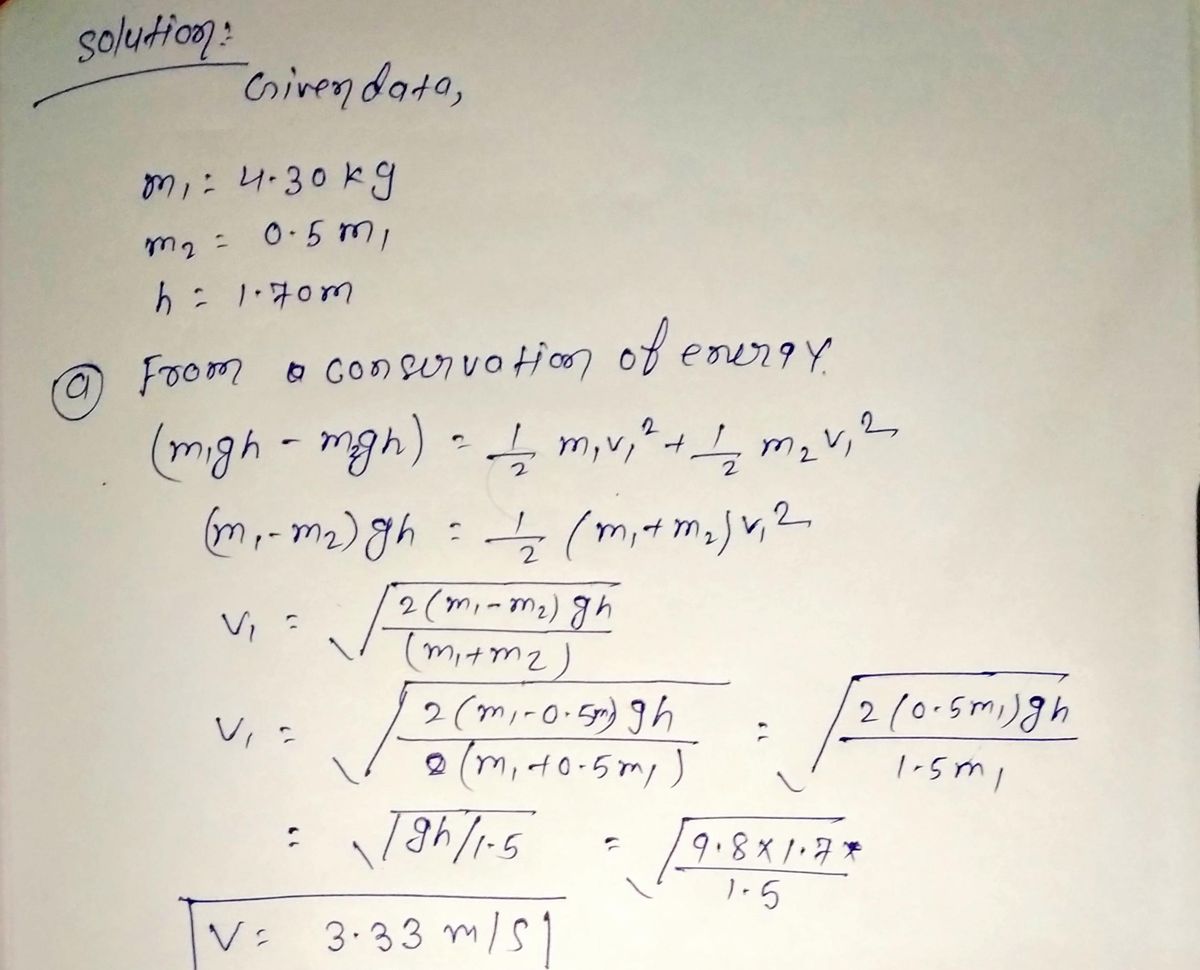 Solution:
Given data,
m₁ = 4.30 kg
m₂ = 0.5 m₁
h = 1.70m
(a) From a conservation of energy.
(m₁gh - m₂gh) = 1/2 m₁v₁² + 1/2 m₂v₁²
(m₁-m₂)gh = 1/2 (m₁+m₂)v₁²
v₁ = √(2(m₁-m₂)gh / (m₁+m₂))
v₁ = √(2(m₁-0.5m₁)gh / (m₁+0.5m₁)) = √(2(0.5m₁)gh / 1.5m₁)
= √(gh/1.5) = √(9.8×1.7 / 1.5)
V = 3.33 m/s